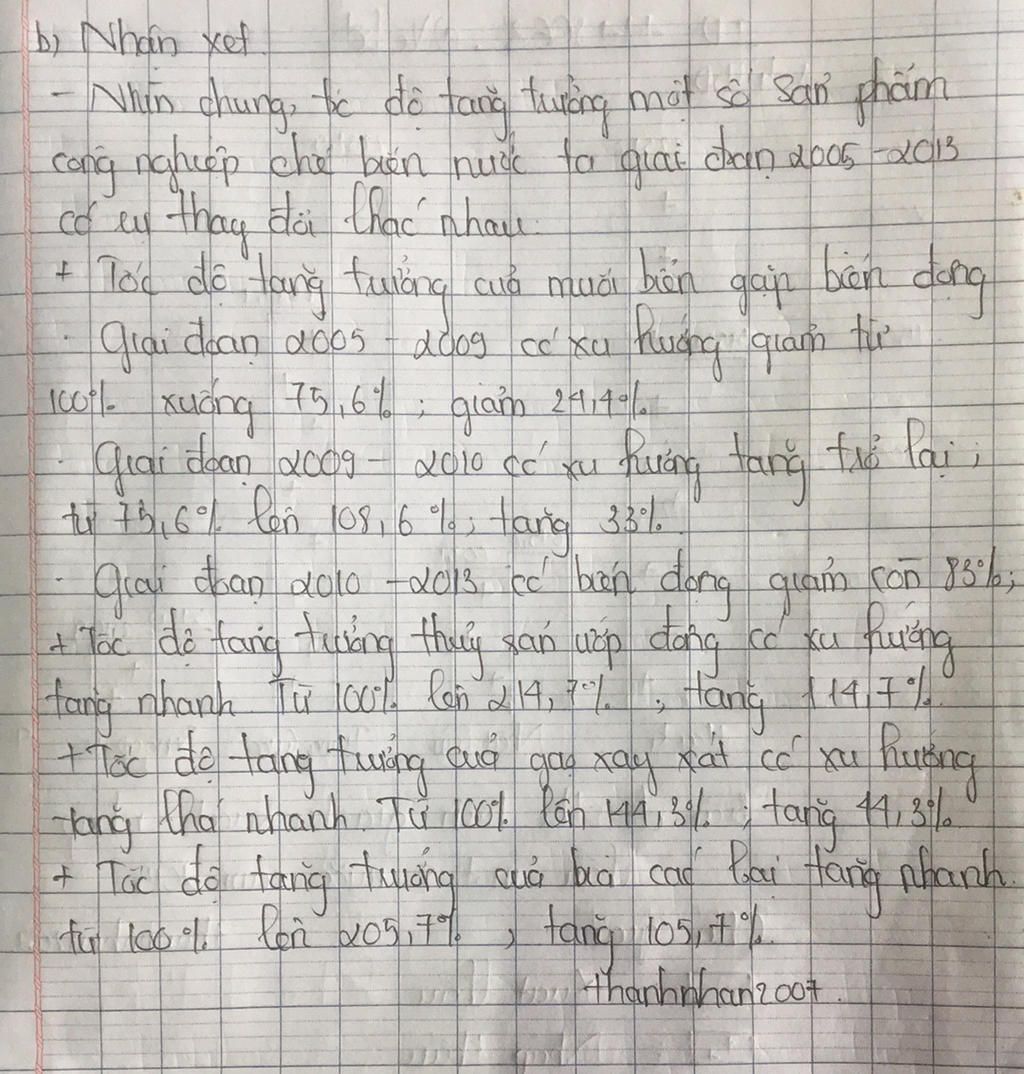 b) Nhận xét.
- Nhìn chung, tốc độ tăng trưởng một số sản phẩm
công nghiệp chế biến nước ta giai đoạn 2005-2013
có sự thay đổi khác nhau.
+ Tốc độ tăng trưởng của muối biển gặp biến động
· Giai đoạn 2005 - 2009 có xu hướng giảm từ
100% xuống 75,6% ; giảm 24,4%.
· Giai đoạn 2009 - 2010 có xu hướng tăng trở lại;
từ 75,6% lên 108,6%; tăng 33%.
- Giai đoạn 2010 - 2013 có biến động giảm còn 83%;
+ Tốc độ tăng trưởng thủy sản ướp đông có xu hướng
tăng nhanh Từ 100% lên 214,7% , tăng 114,7%.
+ Tốc độ tăng trưởng của gạo xay xát có xu hướng
tăng khá nhanh. Từ 100% lên 144,3% ; tăng 44,3%.
+ Tốc độ tăng trưởng của bia các loại tăng nhanh.
từ 100% lên 205,7% , tăng 105,7%.
thanhnhan2007.